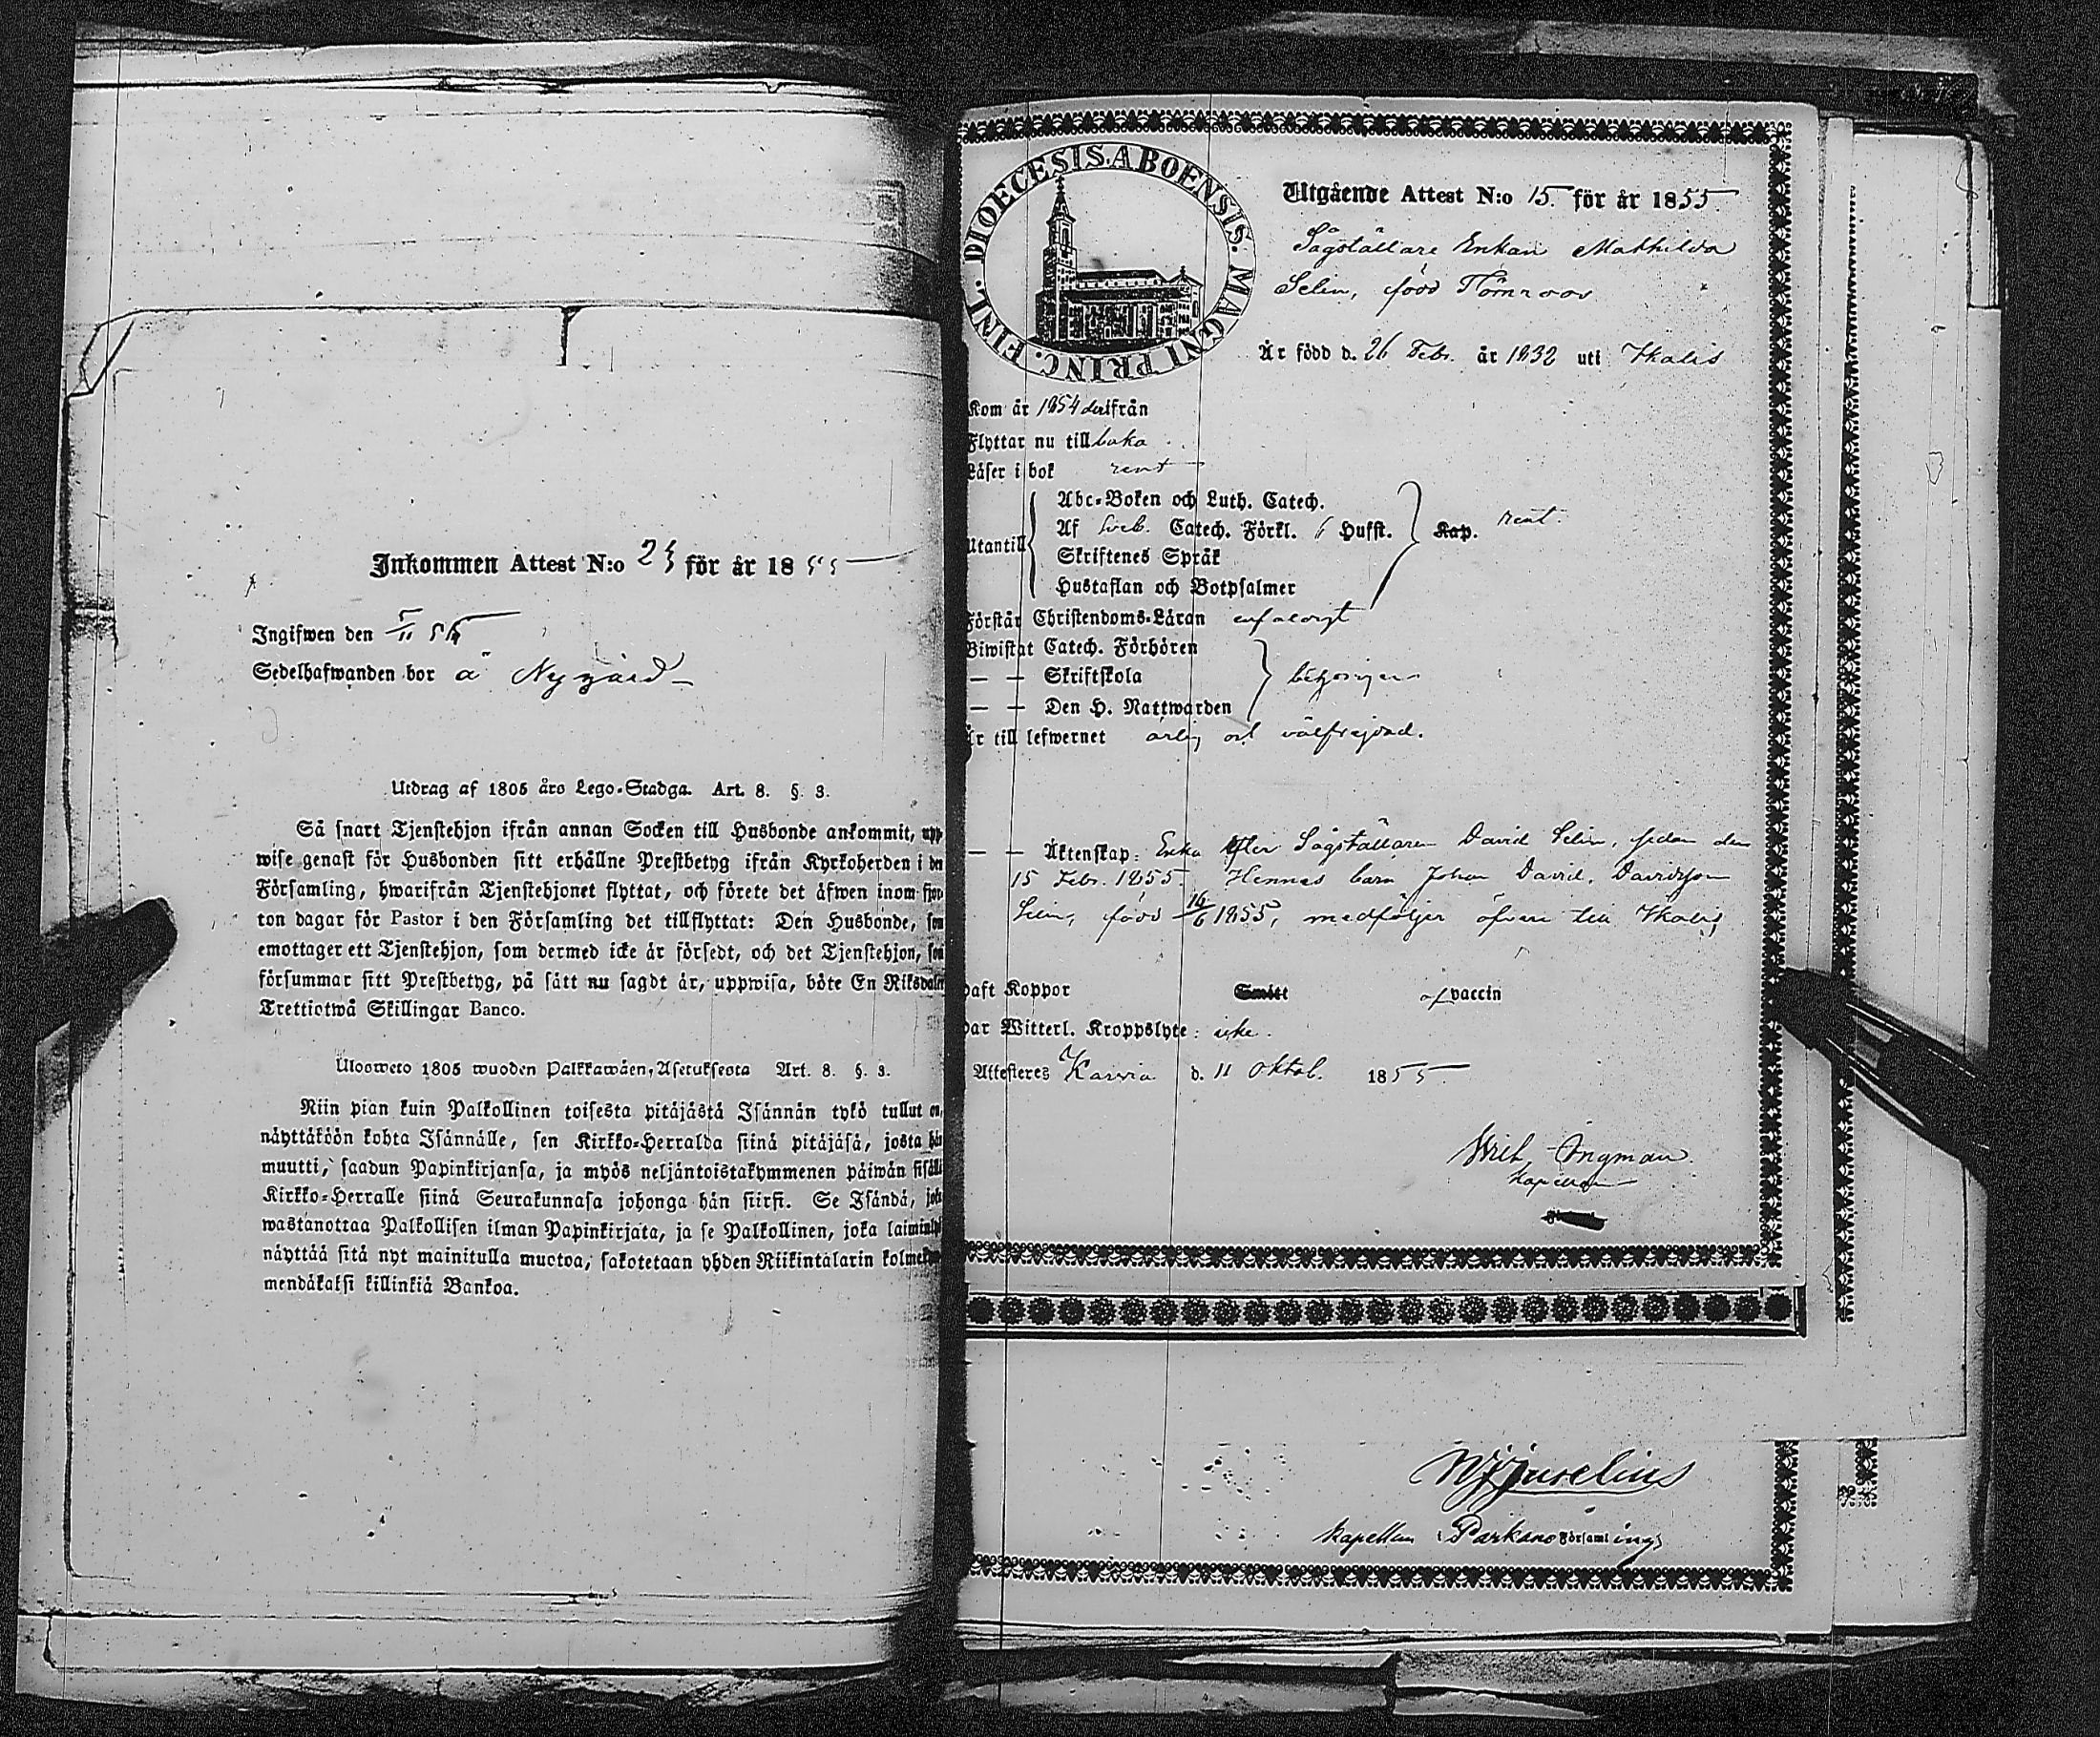 Inkommen Attest N:o 23 för år 1855
Ingifwen den 5/11 55
Sedelhafwanden bor å Nygård
Utdrag af 1805 års Lego-Stadga. Art. 8. §. 3.
Så snart Tjenstehjon ifrån annan Socken till Husbonde ankommit, upp-
wise genast för Husbonden sitt erhållne Prestbetyg ifrån Kyrkoherden i den
Församling, hwarifrån Tjenstehjonet flyttat, och förete det äfwen inom fjor-
ton dagar för Pastor i den Församling det tillflyttat: Den Husbonde, som
emottager ett Tjenstehjon, som dermed icke är försedt, och det Tjenstehjon, som
försummar sitt Prestbetyg, på sätt nu sagdt är, uppwisa, böte En Riksdaler
Trettiotwå Skillingar Banco.
Ulosweto 1805 wuoden Palkkawäen-Asetuksesta Art. 8. §. 3.
Niin pian kuin Palkollinen toisesta pitäjästä Isännän tykö tullut on,
näyttäköön kohta Isännälle, sen Kirkko-Herralda siinä pitäjäsä, josta hän
muutti, saadun Papinkirjansa, ja myös neljäntoistakymmenen päiwän sisällä
Kirkko-Herralle siinä Seurakunnasa johonga hän siirsi. Se Isändä, joka
wastanottaa Palkollisen ilman Papinkirjata, ja se Palkollinen, joka laiminlyö
näyttää sitä nyt mainitulla muotoa, sakotetaan yhden Riikintalarin kolmekym-
mendäkaksi killinkiä Bankoa.
DIOECESIS. ABOENSIS. MAGNI PRINC. FINL.
Utgående Attest N:o 15. för år 1855.
Sågställare Enkan Mathilda
Selin, född Törnroos
Är född d. 26 Febr. år 1832 uti Ikalis
Kom år 1854 derifrån
Flyttar nu tillbaka
Läser i bok rent
Abc-Boken och Luth. Catech.
Utantill Af Sveb. Catech. Förkl. 6 Hufst. Kap. rent.
Skriftenes Språk
Hustaflan och Botpsalmer
Förstår Christendoms-Läran
Biwistat Catech. Förhören
— — Skriftskola behörigen
— — Den H. Nattwarden
Är till lefwernet ärlig och välfrejdad.
— — Äktenskap: Enka efter Sågställaren David Selin, sedan den
15 Febr. 1855. Hennes barn Johan David, Davidsson
Selin, född 16/6 1855, medföljer äfven till Ikalis,
haft Koppor Smitt af vaccin
har Witterl. Kroppslyte: icke.
Attesteres Karvia d. 11 Oktob. 1855.
Ingman.
Kapellan
Kapellan i Parkano Församlings